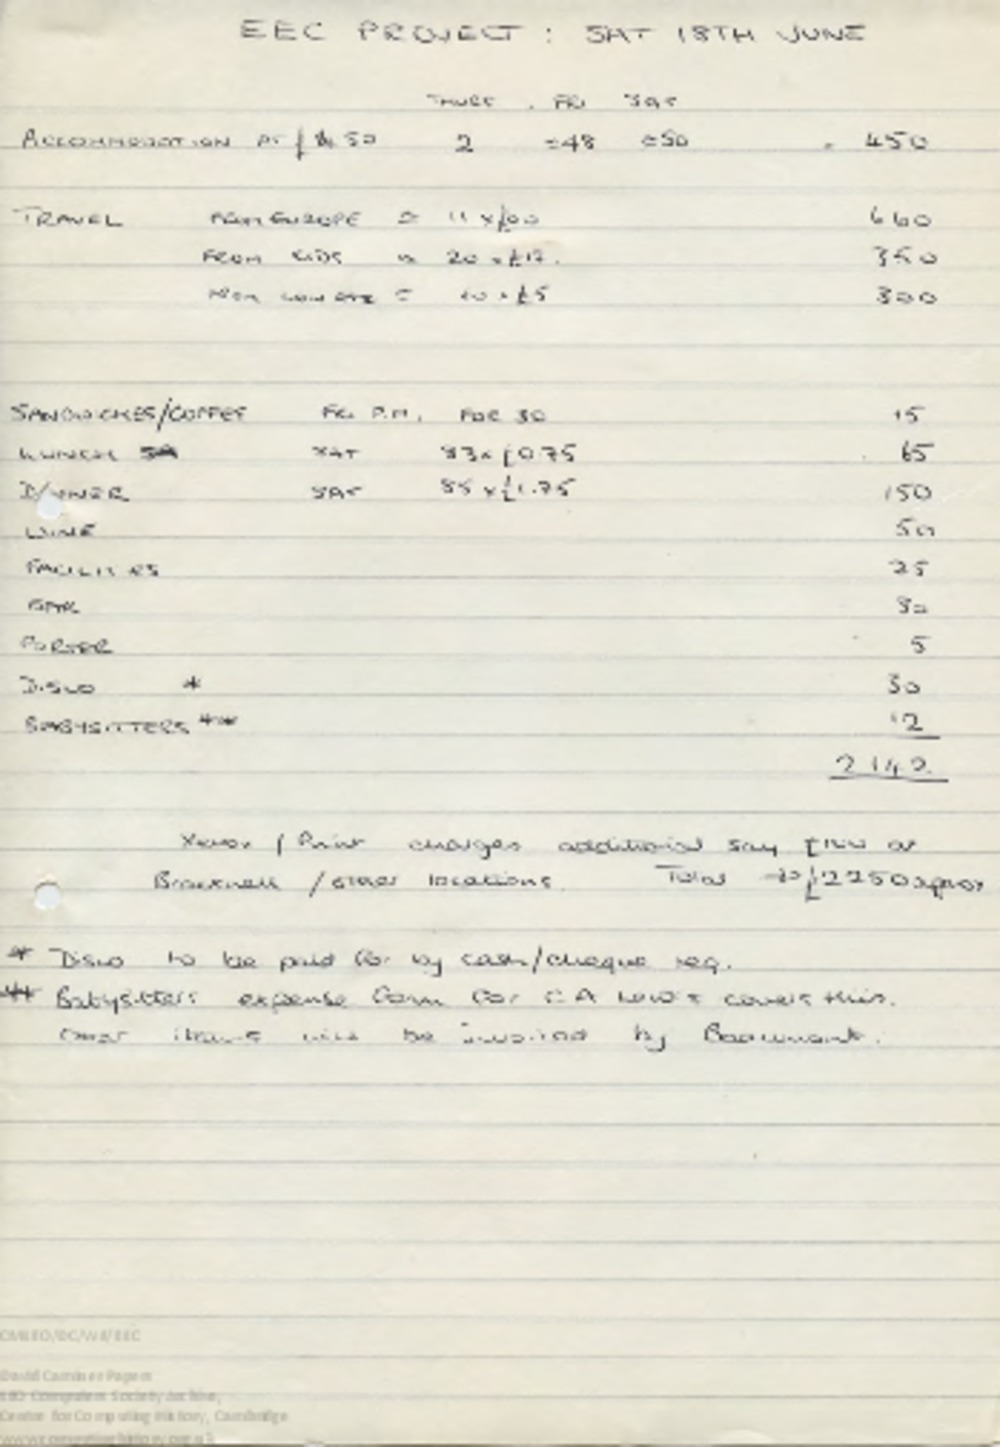 EEC PROJECT : SAT 18TH JUNE
THURS . FRI SAT
ACCOMMODATION AT £4.50 2 =48 =50 . 450
TRAVEL FROM EUROPE = 11 x £60 660
FROM KIDS 20 x £17. 350
FROM = x £5 300
SANDWICHES/COFFEE FRI P.M. FOR 30 15
LUNCH SAT 83 x £0.75 65
DINNER SAT 85 x £1.75 150
WINE 50
FACILITIES 25
BAR 30
PORTER 5
DISCO * 30
BABYSITTERS ** 12
2142
Xerox / Print charges additional say £100 at
Bracknell / other locations. Total → £2250 approx
* Disco to be paid for by cash/cheque req.
** Babysitters expense form for C A Lewis covers this.
Other items will be invoiced by Beaumont.
CMLEO/DC/
David Caminer Papers
LEO Computers Society Archive,
Centre for Computing History, Cambridge
www.computinghistory.org.uk